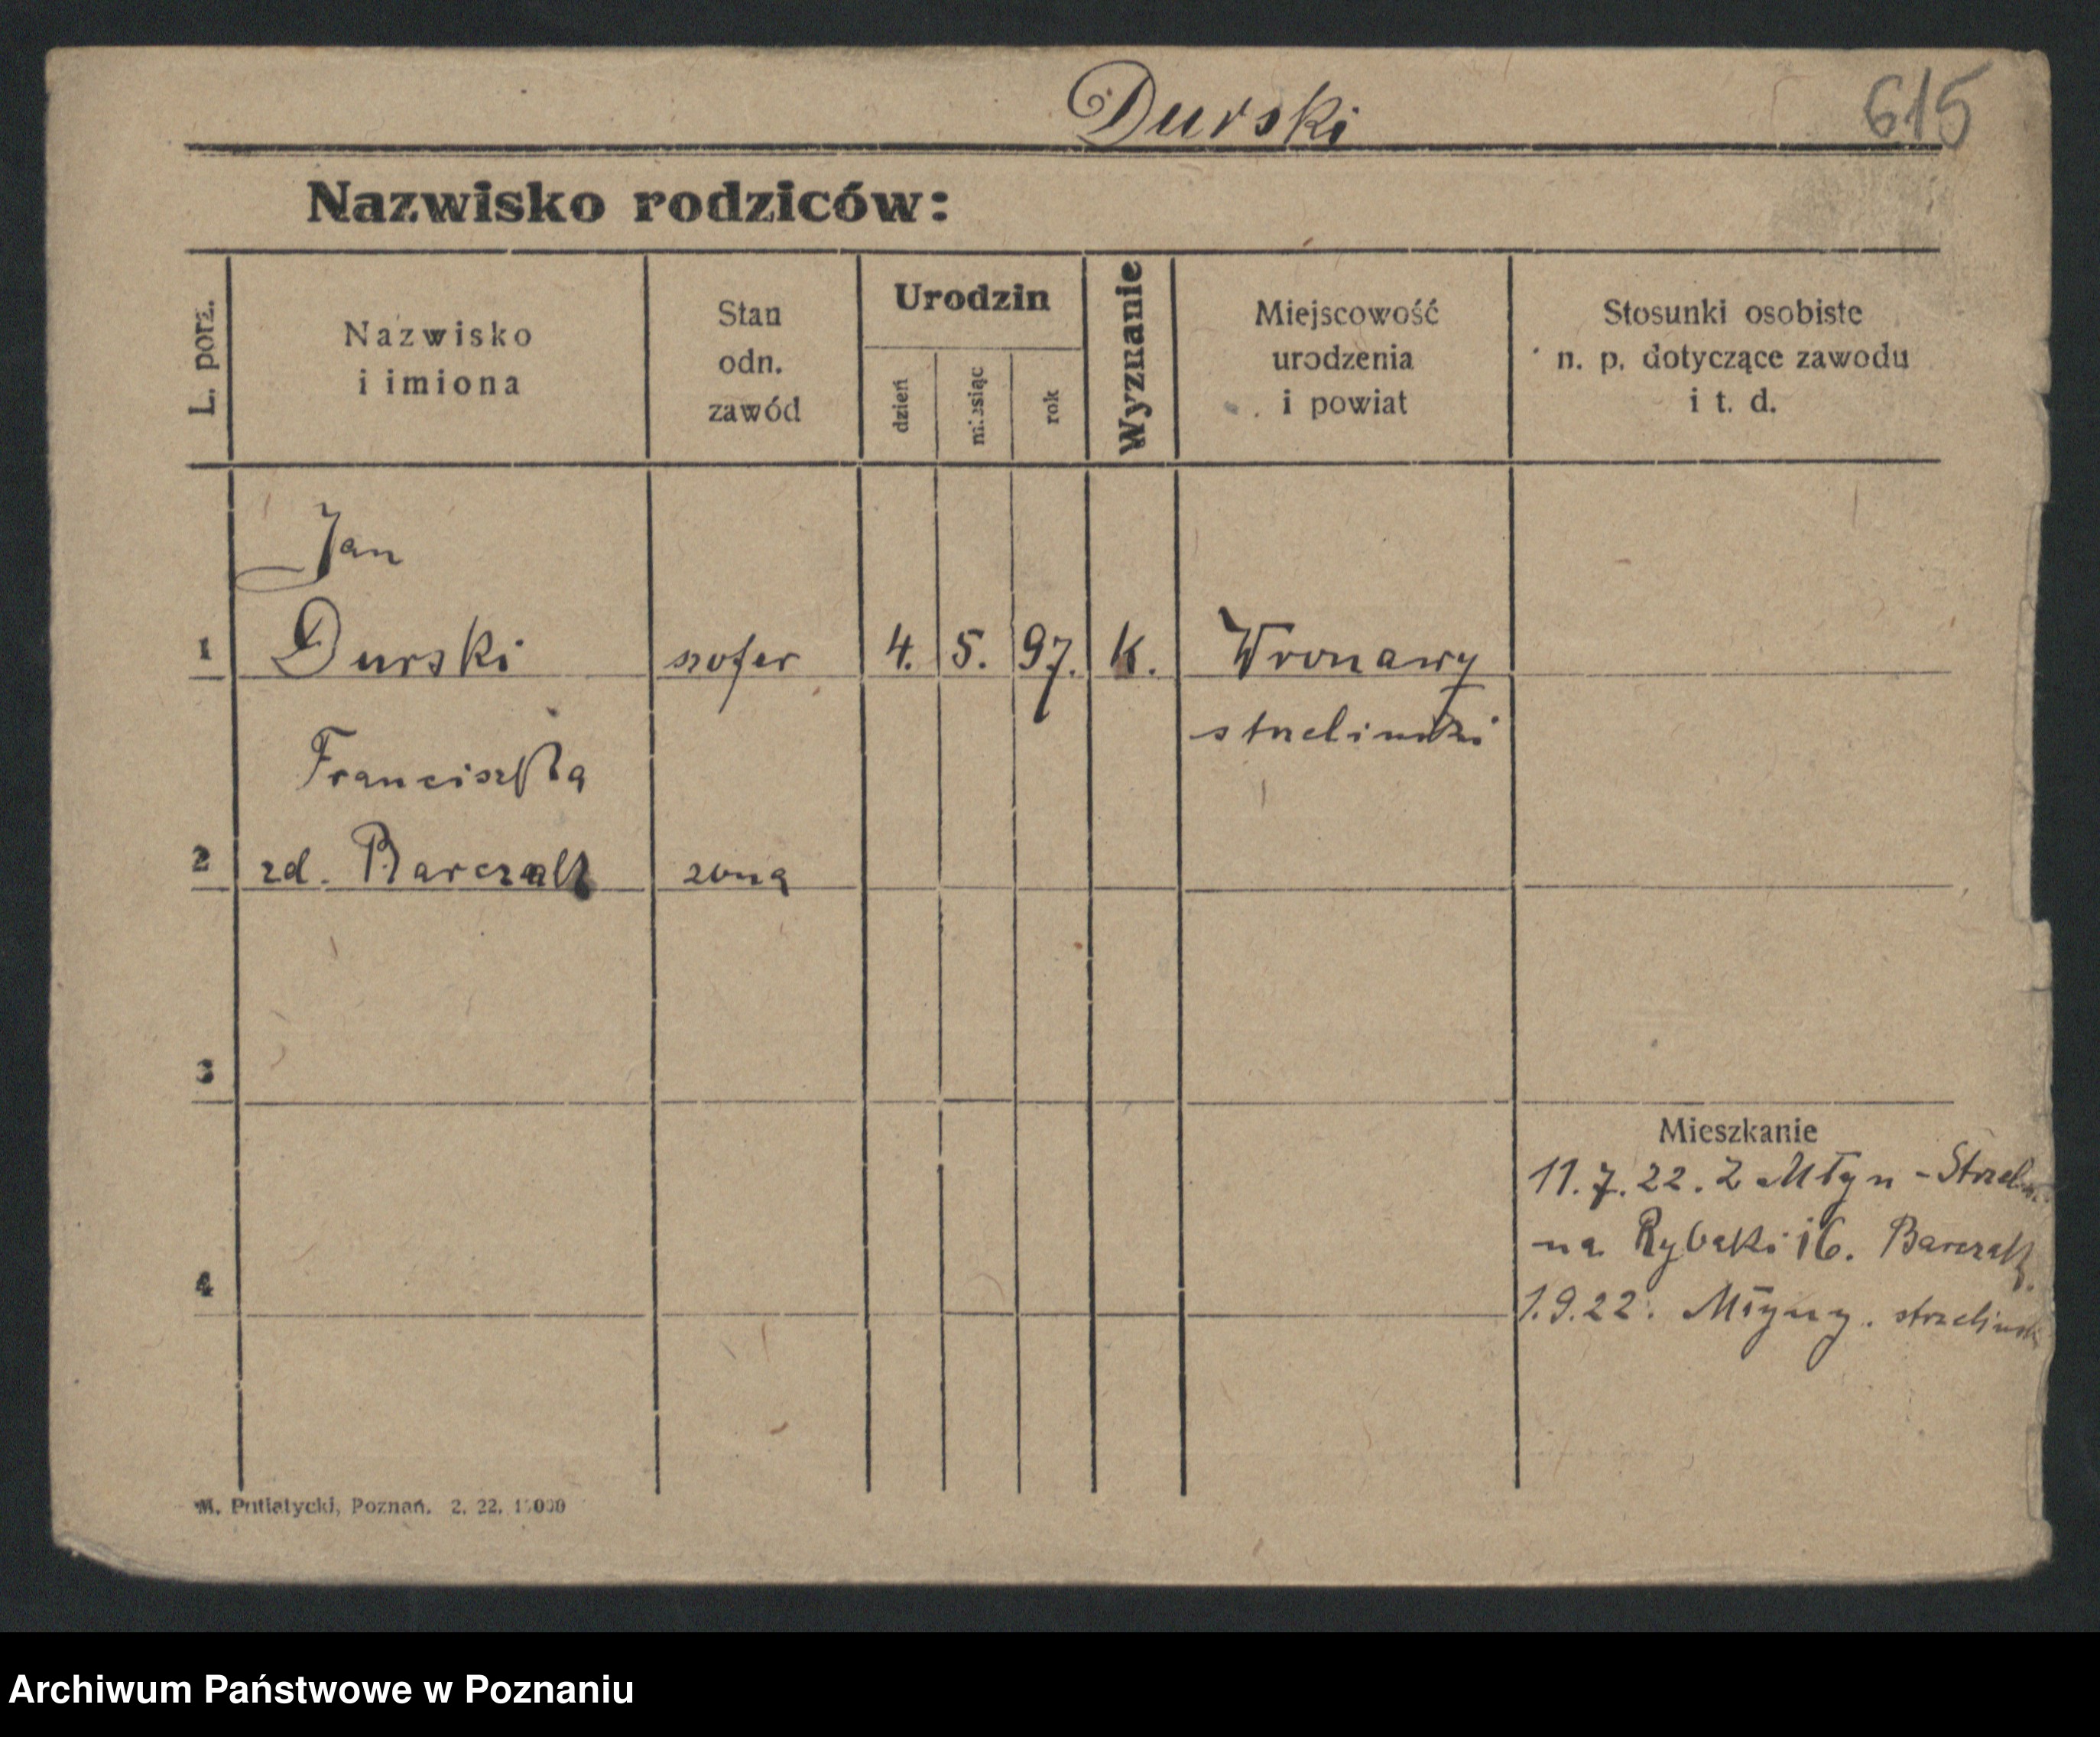 Durski
615
Nazwisko rodziców:
L. porz.
Nazwisko
i imiona
Stan
odn.
zawód
Urodzin
dzień
miesiąc
rok
Wyznanie
Miejscowość
urodzenia
i powiat
Stosunki osobiste
n. p. dotyczące zawodu
i t. d.
Jan
1 Durski szofer 4. 5. 97. K. Wronawy
strzelinski
Franciszka
2 zd. Barczak zona
3
Mieszkanie
11.7.22. Z Młyn - Strzeln
na Rybaki 16. Barczak.
4
1.9.22. Młyny. strzelinsk
M. Putiatycki, Poznań. 2. 22.
Archiwum Państwowe w Poznaniu